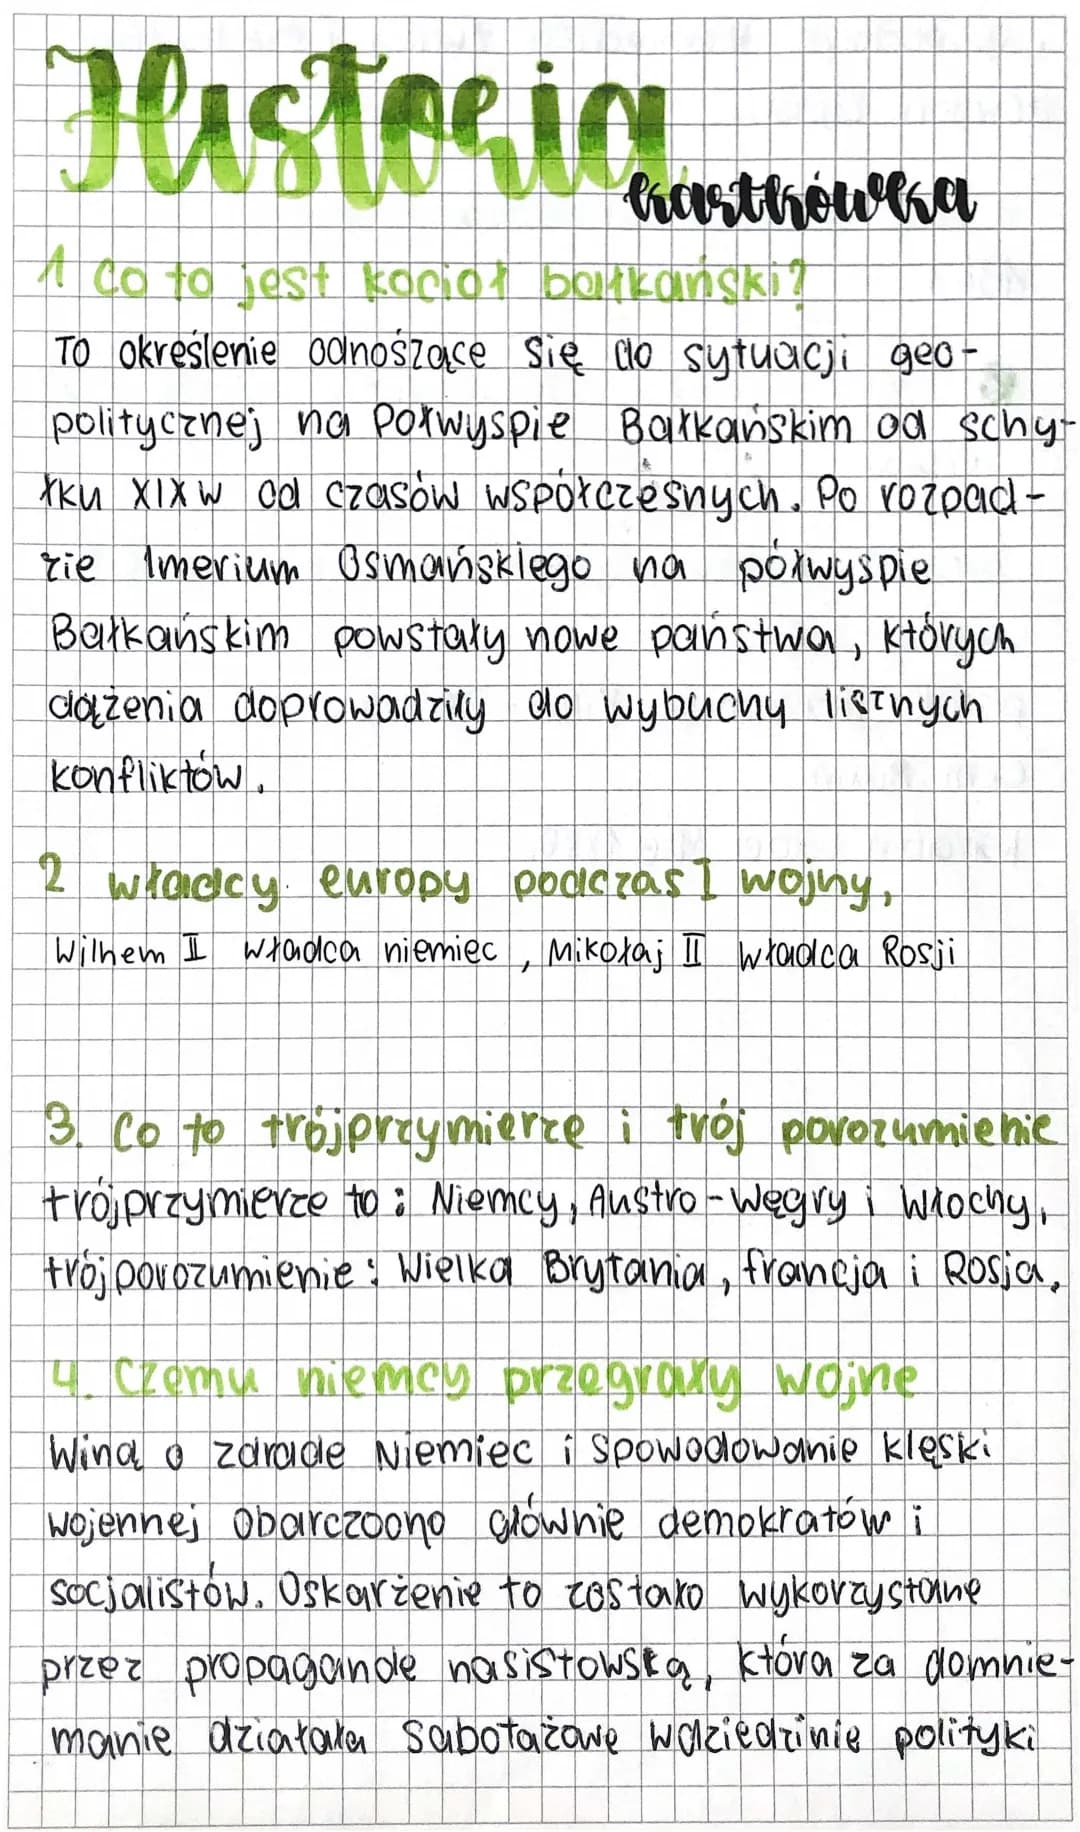 Historia
kartkówka
1 Co to jest kocioł bałkański?
To określenie odnoszące się do sytuacji geo-
politycznej na Połwyspie Bałkańskim od schy-
łku XIX w od czasów współczesnych. Po rozpad-
zie Imerium Osmańskiego na półwyspie
Bałkańskim powstały nowe państwa, których
dążenia doprowadziły do wybuchy licznych
konfliktów.
2 władcy europy podczas I wojny,
Wilhem II władca niemiec, Mikołaj II władca Rosji
3. Co to trójprzymierze i trój porozumienie
trójprzymierze to: Niemcy, Austro-Węgry i Włochy,
trójporozumienie: Wielka Brytania, francja i Rosja,
4. Czemu niemcy przegrały wojne
Winą o zdrade Niemiec i spowodowanie klęski
wojennej obarczoono głównie demokratów i
socjalistów. Oskarżenie to zostało wykorzystane
przez propagande nasistowską, która za domnie-
manie działała sabotażowe wdziedzinie polityki